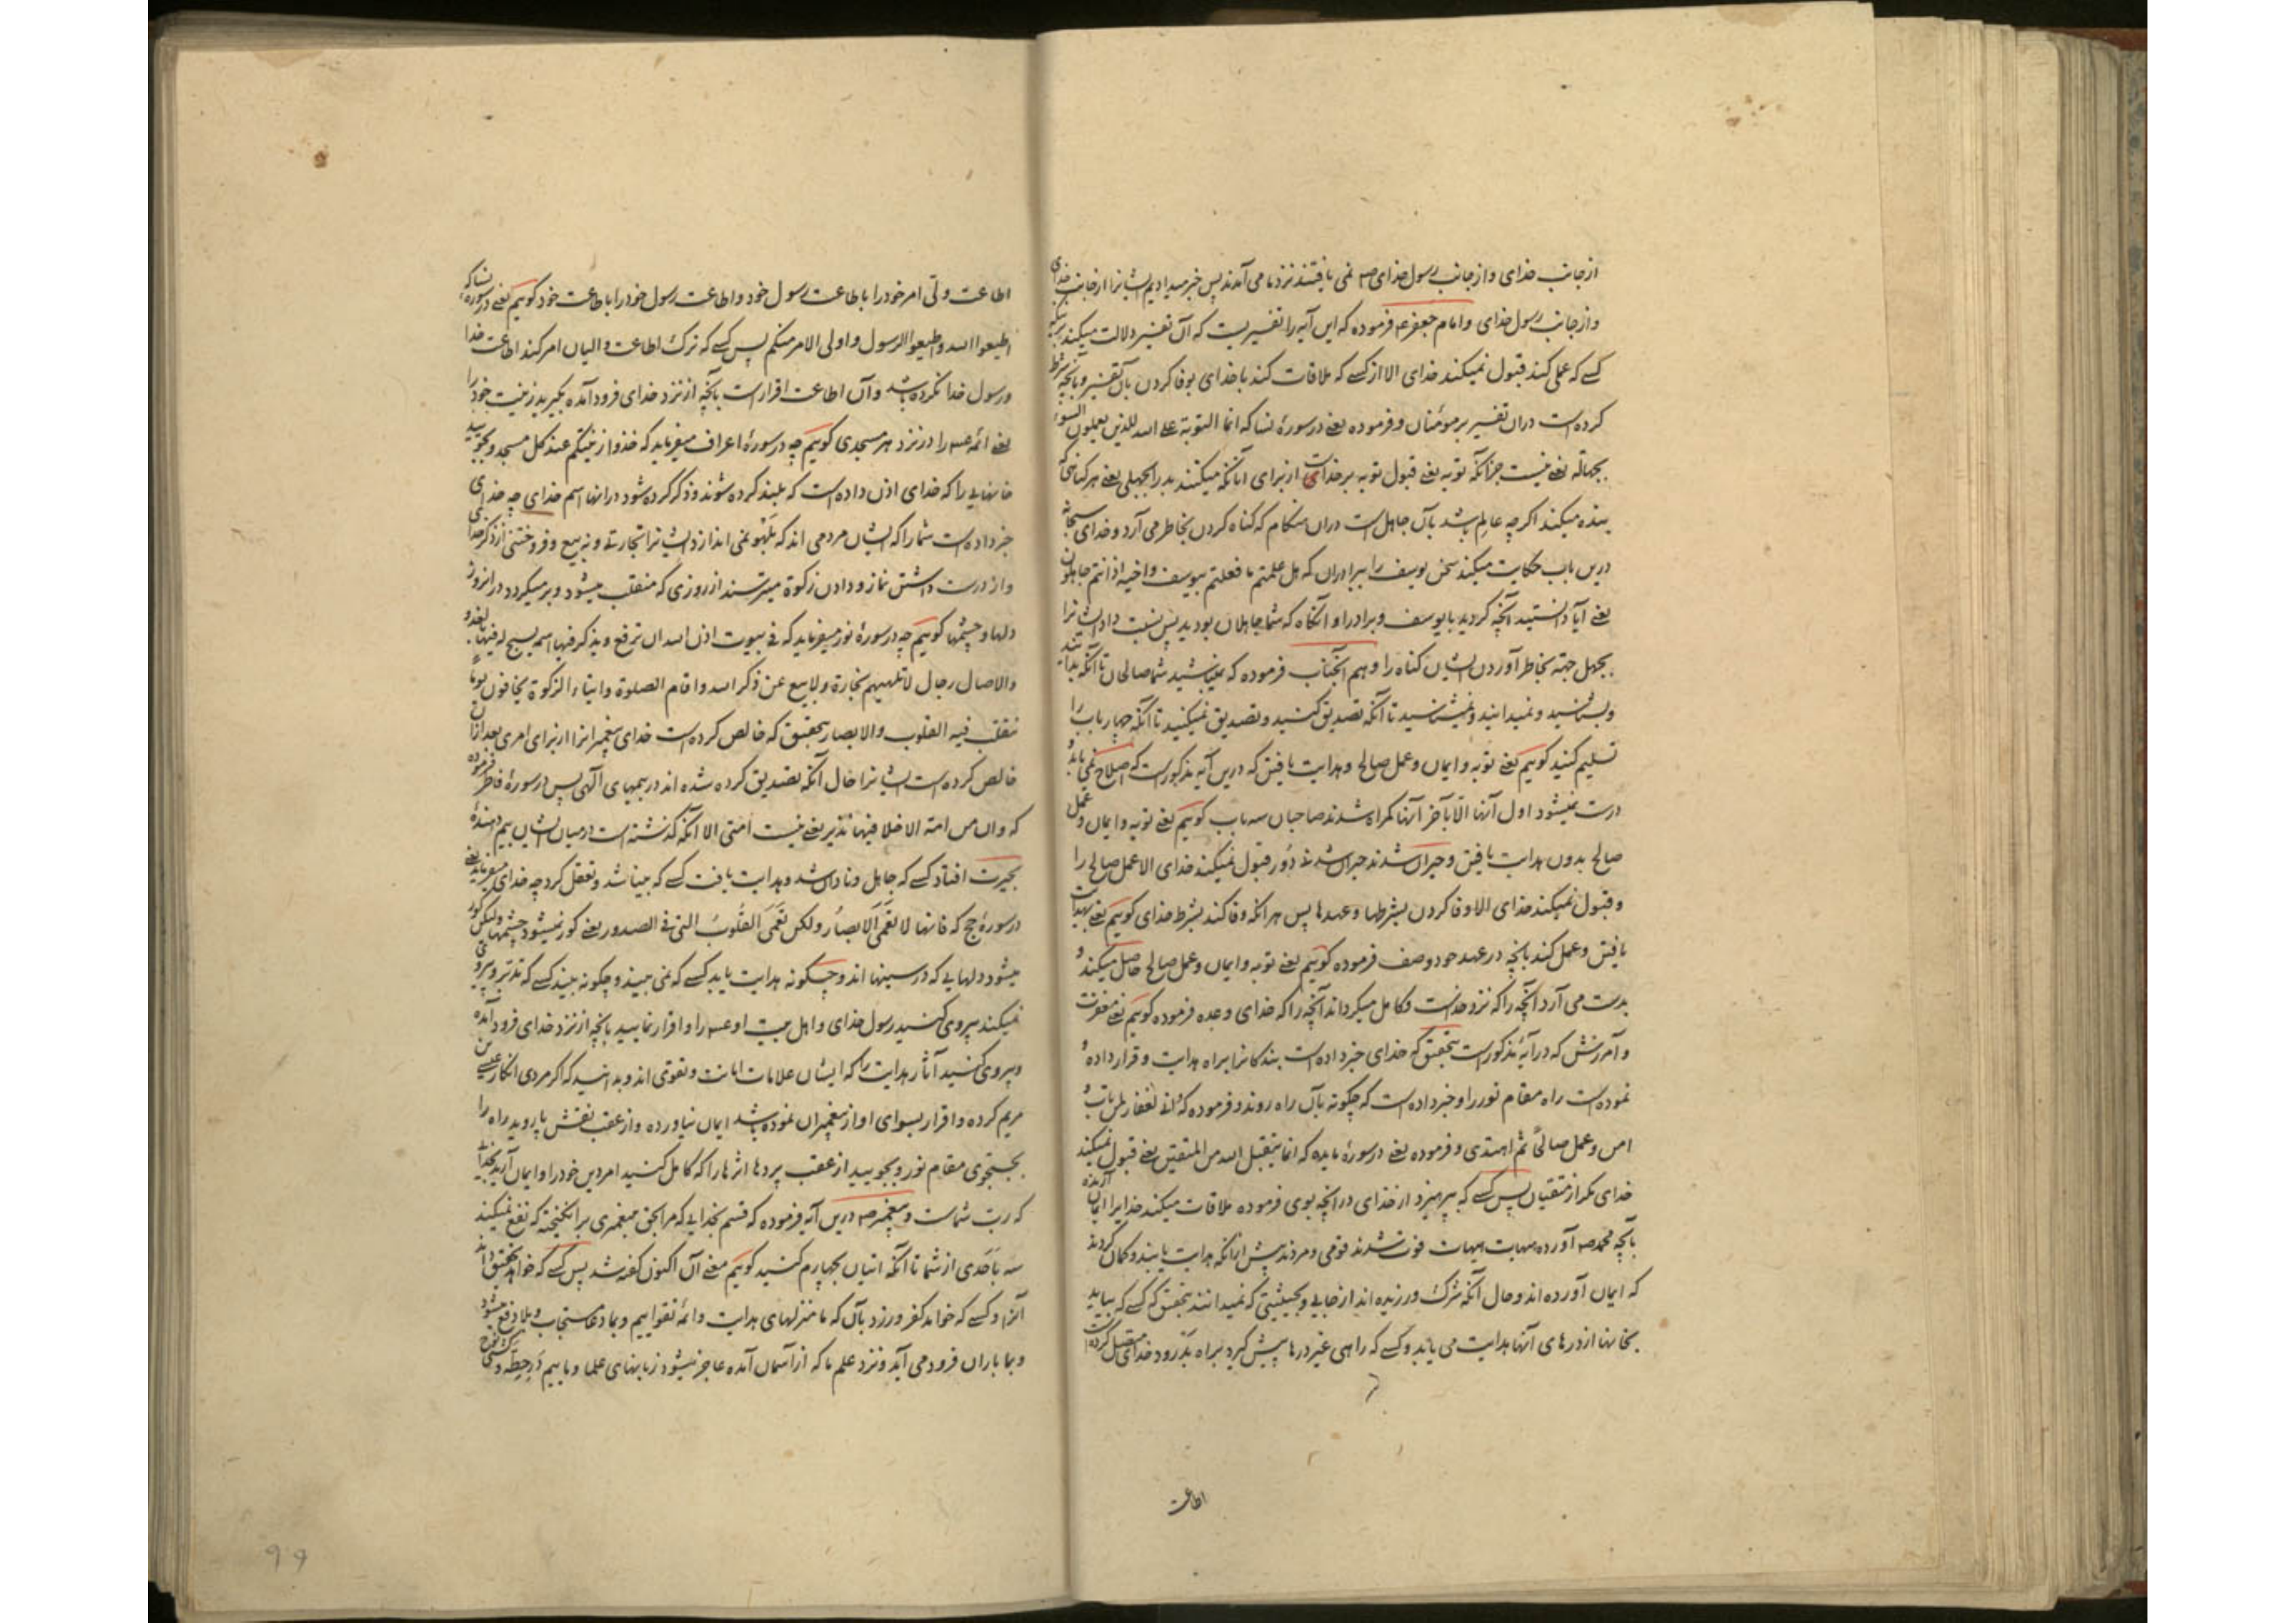 از جانب خدای و از جانب رسول خدای صه نمی یافتند نزد ما می آمدند پس خبر میدادیم ایشانرا از جانب خدای
و از جانب رسول خدای و امام جعفر عه فرموده که این آیه را تفسیریست که آن تفسیر دلالت میکند
کسے که عملی کند قبول نمیکند خدای الا از کسے که ملاقات کند با خدای بوفا کردن بآن تفسیر و بآنچه شرط
کرده است دران تفسیر بر مؤمنان و فرموده یعنے در سورهٔ نسا که انما التوبة علے الله للذین یعملون السوء
بجهالة یعنے نیست جز آنکه توبه یعنے قبول توبه بر خداست از برای آنانکه میکنند بد را بجهلی یعنے هر کناهی که
بنده میکند اکرچه عالم باشد بآن جاهل است دران هنکام که کناه کردن بخاطر می آرد و خدای سبحانه
درین باب حکایت میکند سخن یوسف را ببرادران که هل علمتم ما فعلتم بیوسف و اخیه اذ انتم جاهلون
یعنے آیا دانستید آنچه کردید با یوسف و برادر او آنکاه که شما جاهلان بودید پس نسبت داد ایشانرا
بجهل جهة بخاطر آوردن ایشان کناه را و هم آنجناب فرموده که نمیباشید شما صالحان تا آنکه
و بشناسید و نمیدانید و نمیشناسید تا آنکه تصدیق کنید و تصدیق نمیکنید تا آنکه چهار باب را
تسلیم کنید کوییم یعنے توبه و ایمان و عمل صالح و هدایت یافتن که درین آیه مذکور است که اصلاح نمی یابد و
درست نمیشود اول آنها الا بآخر آنها کمراه شدند صاحبان سه باب کوییم یعنے توبه و ایمان و عمل
صالح بدون هدایت یافتن و حیران شدند حیران شدنے دور قبول نمیکند خدای الا عمل صالح را
و قبول نمیکند خدای الا وفا کردن بشرطها و عهدها پس هر آنکه وفا کند بشرط خدای کوییم یعنے بهدایت
یافتن و عمل کند بآنچه در عهد خود وصف فرموده کوییم یعنے توبه و ایمان و عمل صالح حاصل میکند و
بدست می آرد آنچه را که نزد خداست و کامل میکرداند آنچه را که خدای وعده فرموده کوییم یعنے مغفرت
و آمرزش که در آیهٔ مذکور است بتحقیق که خدای خبر داده است بندکانرا براه هدایت و قرار داده و
نموده است راه مقام نور را و خبر داده است که چکونه بآن راه روند و فرموده که انے لغفار لمن تاب و
امن و عمل صالحًا ثم اهتدی و فرموده یعنے در سورهٔ مایده که انما یتقبل الله من المتقین یعنے قبول نمیکند
خدای مکر از متقیان پس کسے که بپرهیزد از خدای در آنچه بوی فرموده ملاقات میکند خدایرا ایمان آرنده
بآنچه محمد صه آورده هیهات هیهات فوت شدند قومی و مردند پیش از آنکه هدایت یابند و کمان کردند
که ایمان آورده اند و حال آنکه شرک ورزیده اند از جایی و بحیثیتی که نمیدانند بتحقیق که کسے که بیاید
بخانها از درهای آنها هدایت می یابد و کسے که راهی غیر درها پیش کیرد براه بد رود خدای متصل کرده است
اطاعت
اطاعت ولی امر خود را باطاعت رسول خود و اطاعت رسول خود را باطاعت خود کوییم یعنے در سورهٔ نسا که
اطیعوا الله و اطیعوا الرسول و اولی الامر منکم پس کسے که ترک اطاعت والیان امر کند اطاعت خدا
و رسول خدا نکرده باشد و آن اطاعت اقرار است بآنچه از نزد خدای فرود آمده بکیرید زینت خود را
یعنے ائمه عه را در نزد هر مسجدی کوییم چه در سورهٔ اعراف میفرماید که خذوا زینتکم عند کل مسجد و بجویید
خانهایی را که خدای اذن داده است که بلند کرده شوند و ذکر کرده شود درانها اسم خدای چه خدای
خبر داده است شما را که ایشان مردمی اند که بلهو نمی اندازد ایشانرا تجارتے و نه بیع و فروختنی از ذکر خدا
و از درست داشتن نماز و دادن زکوة میترسند از روزی که منقلب میشود و بر میکردد درانروز
دلها و چشمها کوییم چه در سورهٔ نور میفرماید که فے بیوت اذن الله ان ترفع و یذکر فیها اسمه یسبح له فیها بالغدو
والاصال رجال لا تلهیهم تجارة ولا بیع عن ذکر الله و اقام الصلوة و ایتاء الزکوة یخافون یومًا
تتقلب فیه القلوب والابصار بتحقیق که خالص کرده است خدای پیغمبرانرا از برای امری بعد ازان
خالص کرده است ایشانرا حال آنکه تصدیق کرده شده اند در بیمهای الهی پس در سورهٔ فاطر فرموده
که وان من امة الا خلا فیها نذیر یعنے نیست امتی الا آنکه کذشته است در میان ایشان بیم دهندهٔ
بحیرت افتاد کسے که جاهل و نادان شد و هدایت یافت کسے که بینا شد و تعقل کرد چه خدای میفرماید
در سورهٔ حج که فانها لا تعمی الابصار ولکن تعمی القلوب التی فے الصدور یعنے کور نمیشود چشمها ولیکن کور
میشود دلهایی که در سینها اند و چکونه هدایت یابد کسے که نمی بیند و چکونه بیند کسے که تدبر و پیروی
نمیکند پیروی کنید رسول خدای و اهل بیت او عه را و اقرار نمایید بآنچه از نزد خدای فرود آمده
و پیروی کنید آثار هدایت را که ایشان علامات امانت و تقوی اند و بدانید که اکر مردی انکار عیسے بن
مریم کرده و اقرار بسوای او از پیغمبران نموده باشد ایمان نیاورده و از عقب نقش پا روید راه را
بجستجوی مقام نور و بجویید از عقب پردها اثرها را که کامل کنید امر دین خود را و ایمان آرید بخدای
که رب شماست و پیغمبر صه درین آیه فرموده که قسم بخدایی که مرا بحق پیغمبری برانکیخته که نفع نمیکند
سه باحدی از شما تا آنکه اتیان بچهارم کنید کوییم معنے آن اکنون کفته شد پس کسے که خواهد
آنرا و کسے که خواهد کفر ورزد بآن که ما منزلهای هدایت و ائمهٔ تقواییم و بما دعا مستجاب و بلا دفع میشود
و بما باران فرود می آید و نزد علم ما که از آسمان آمده عاجز میشود زبانهای علما و ماییم در حطه و
۹۹